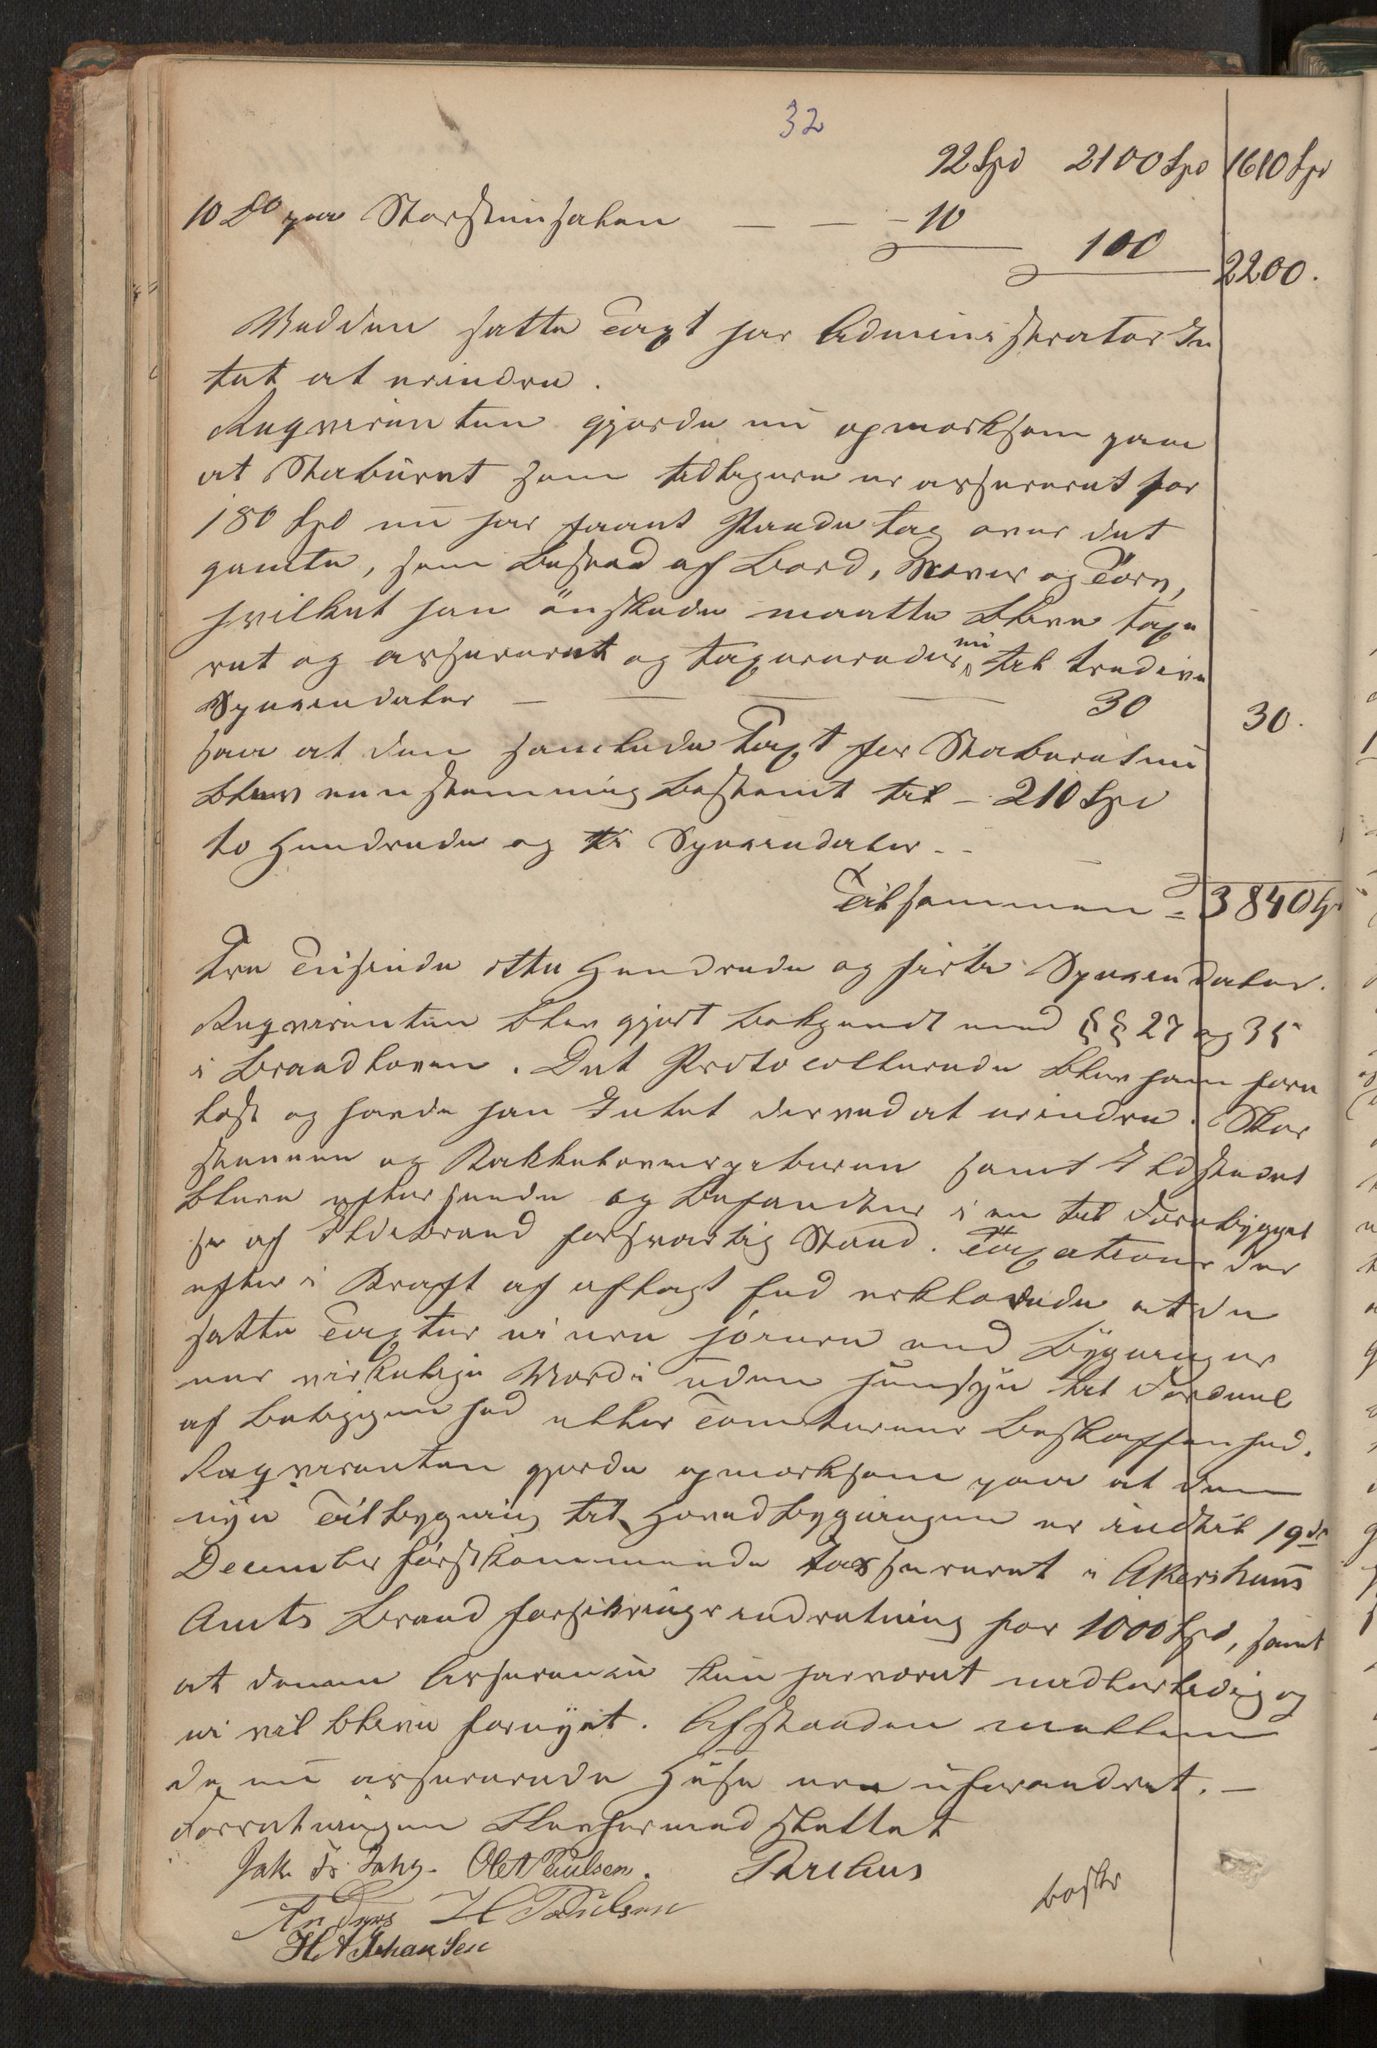 32
92 Spd 2100 Spd 1610 Spd
10 Do paa Storstuesalen — — 10
100 2200.
Ved den satte Taxt har Administrator In
tet at erindre.
Requirenten gjorde nu opmærksom paa
at Staburet som tidligere er assureret for
180 Spd nu har faaet Pandetag over det
gamle, som bestod af Bord, Næver og Törv,
hvilket han önskede maatte blive taxe
ret og assureret og taxereredes nu til tredive
Speciedaler — — — 30 30.
saa at den samlede Taxt for Staburet nu
blev eenstemmig bestemt til – 210 Spd
to Hundrede og ti Speciedaler. –
Tilsammen = 3840 Sp
Tre Tusinde otte Hundrede og firti Speciedaler.
Requirenten blev gjort bekjendt med §§ 27 og 35
i Brandloven. Det Protocollerede blev ham fore
læst og havde han Intet derved at erindre. Skor
stenene og Kakkelovnsrørene samt Ildstedet
bleve efterseede og befandtes i en til Forebyggel
se af Ildebrand forsvarlig Stand. Taxationen der
efter i Kraft af aflagt Eed erklærede at de
satte Taxter ei ere höiere end Bygninger
nes virkelige Værdi uden Hensyn til Fordeel
af Beliggenhed eller Tomternes Beskaffenhed.
Requirenten gjorde opmærksom paa at den
nye Tilbygning til Hovedbygningen er indtil 19de
December förstkommende assureret i Akershuus
Amts Brandforsikringsindretning for 1000 Spd, samt
at denne Assurance kun har været midlertidig og
ei vil blive fornyet. Afstanden mellem
de nu assurerede Huse ere uforandret. —
Forretningen blev hermed sluttet
Ole A Paulsen. Parelius
Anders H Paulsen
H A Johansen